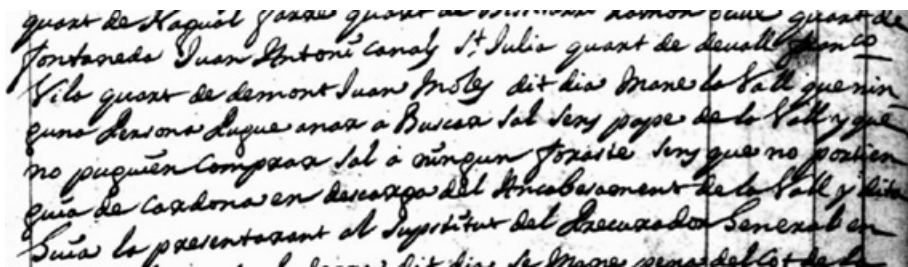 quart de Nagual Farré quart de Bixisarri Ramon quart de
fontaneda Juan Antoni Canals St. Julia quart de devall Franco
Vila quart de demont Juan Moles dit dia Mane la Vall que nin-
guna Persona Pugue anar a Buscar Sal sens pape de la Vall y que
no puguien Comprar Sal à ningun foraste sens que no portien
guia de Cardona en descarga del Encabesament de la Vall y dita
Guia la presentarant al Supstitut del Procurador General en
dit dia se Mane pena del Cot de la